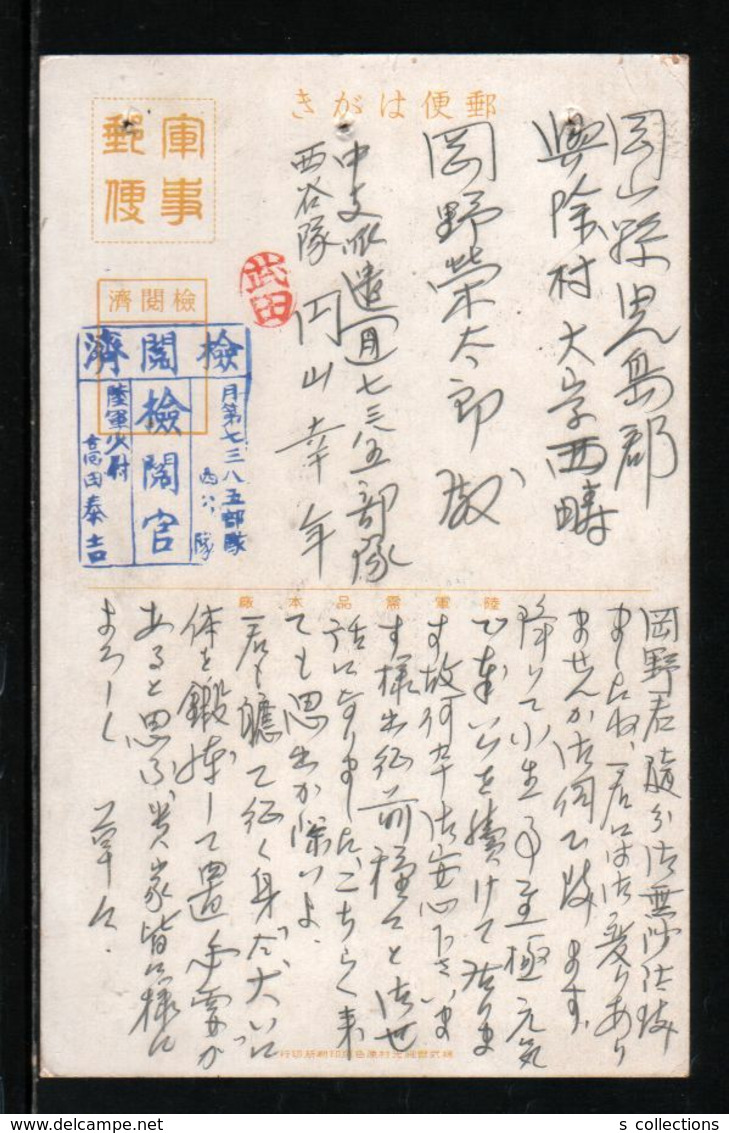 郵便はがき
軍事
郵便
檢閲濟
岡山縣児島郡
興除村大字西畴
岡野栄太郎 殿
中支派遣 月七三八五部隊
西谷隊 円山幸年
武田
檢閲濟
月第七三八五部隊
西谷隊
檢閲官
陸軍少尉
高田泰吉
陸軍需品本廠
岡野君随分御無沙汰致
しましたね、君には御変りあり
ませんか御伺ひ致します。
降りて小生事至極元気
で軍務を続けて居りま
す故何卒御安心下さいま
す様出征前種々と御世
話になりました、こちらへ来
ても思出が深いよ。
君も聴て征く身だ大いに
体を鍛錬して置く必要が
あると思ふ、貴家皆々様に
よろしく 草々.
s collections